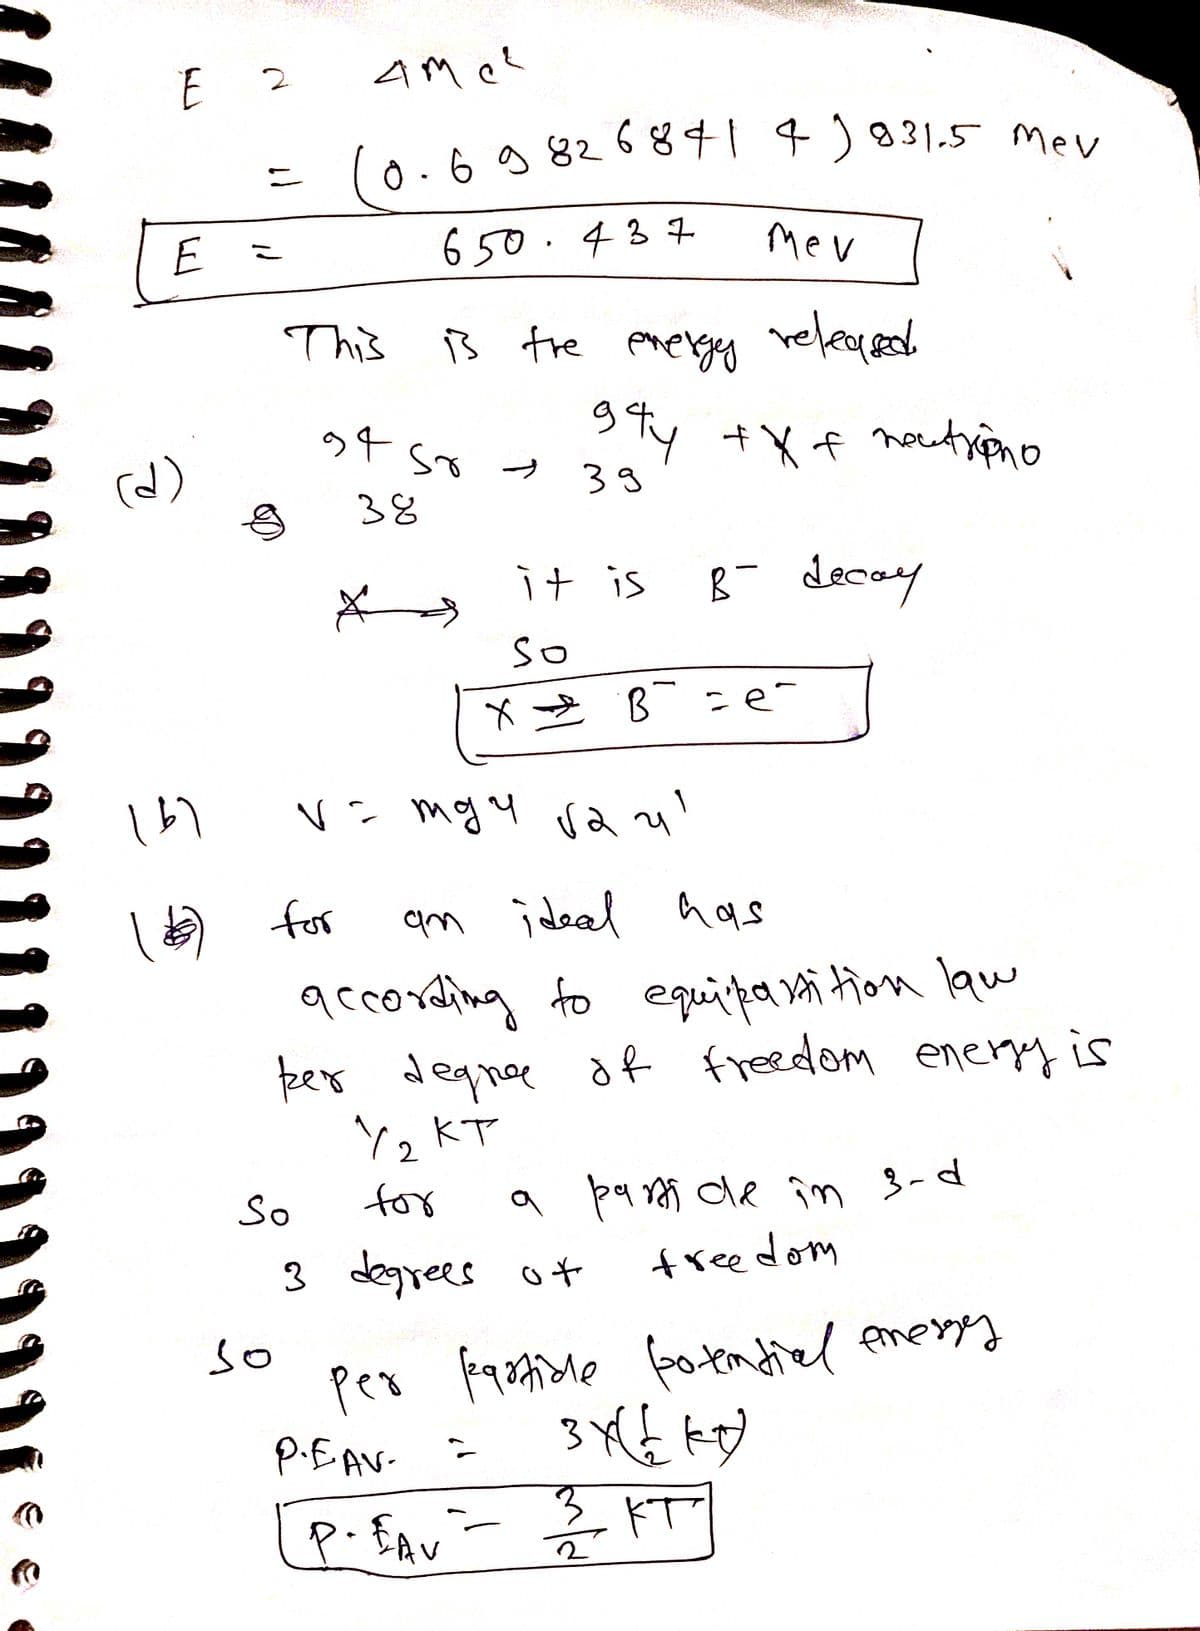 E = ΔMc²
= (0.698268414) 931.5 Mev
E = 650.437 Mev
This is the energy released
(d) ⁹⁴₃₈Sr → ⁹⁴₃₉Y + X + neutrino
it is β⁻ decay
so
X → β⁻ = e⁻
(b) V = mgy
for an ideal has
according to equipartition law
per degree of freedom energy is
1/2 KT
So for a particle in 3-d
3 degrees of freedom
so per particle potential energy
P.E AV. = 3×(1/2 kT)
P.E AV = 3/2 KT